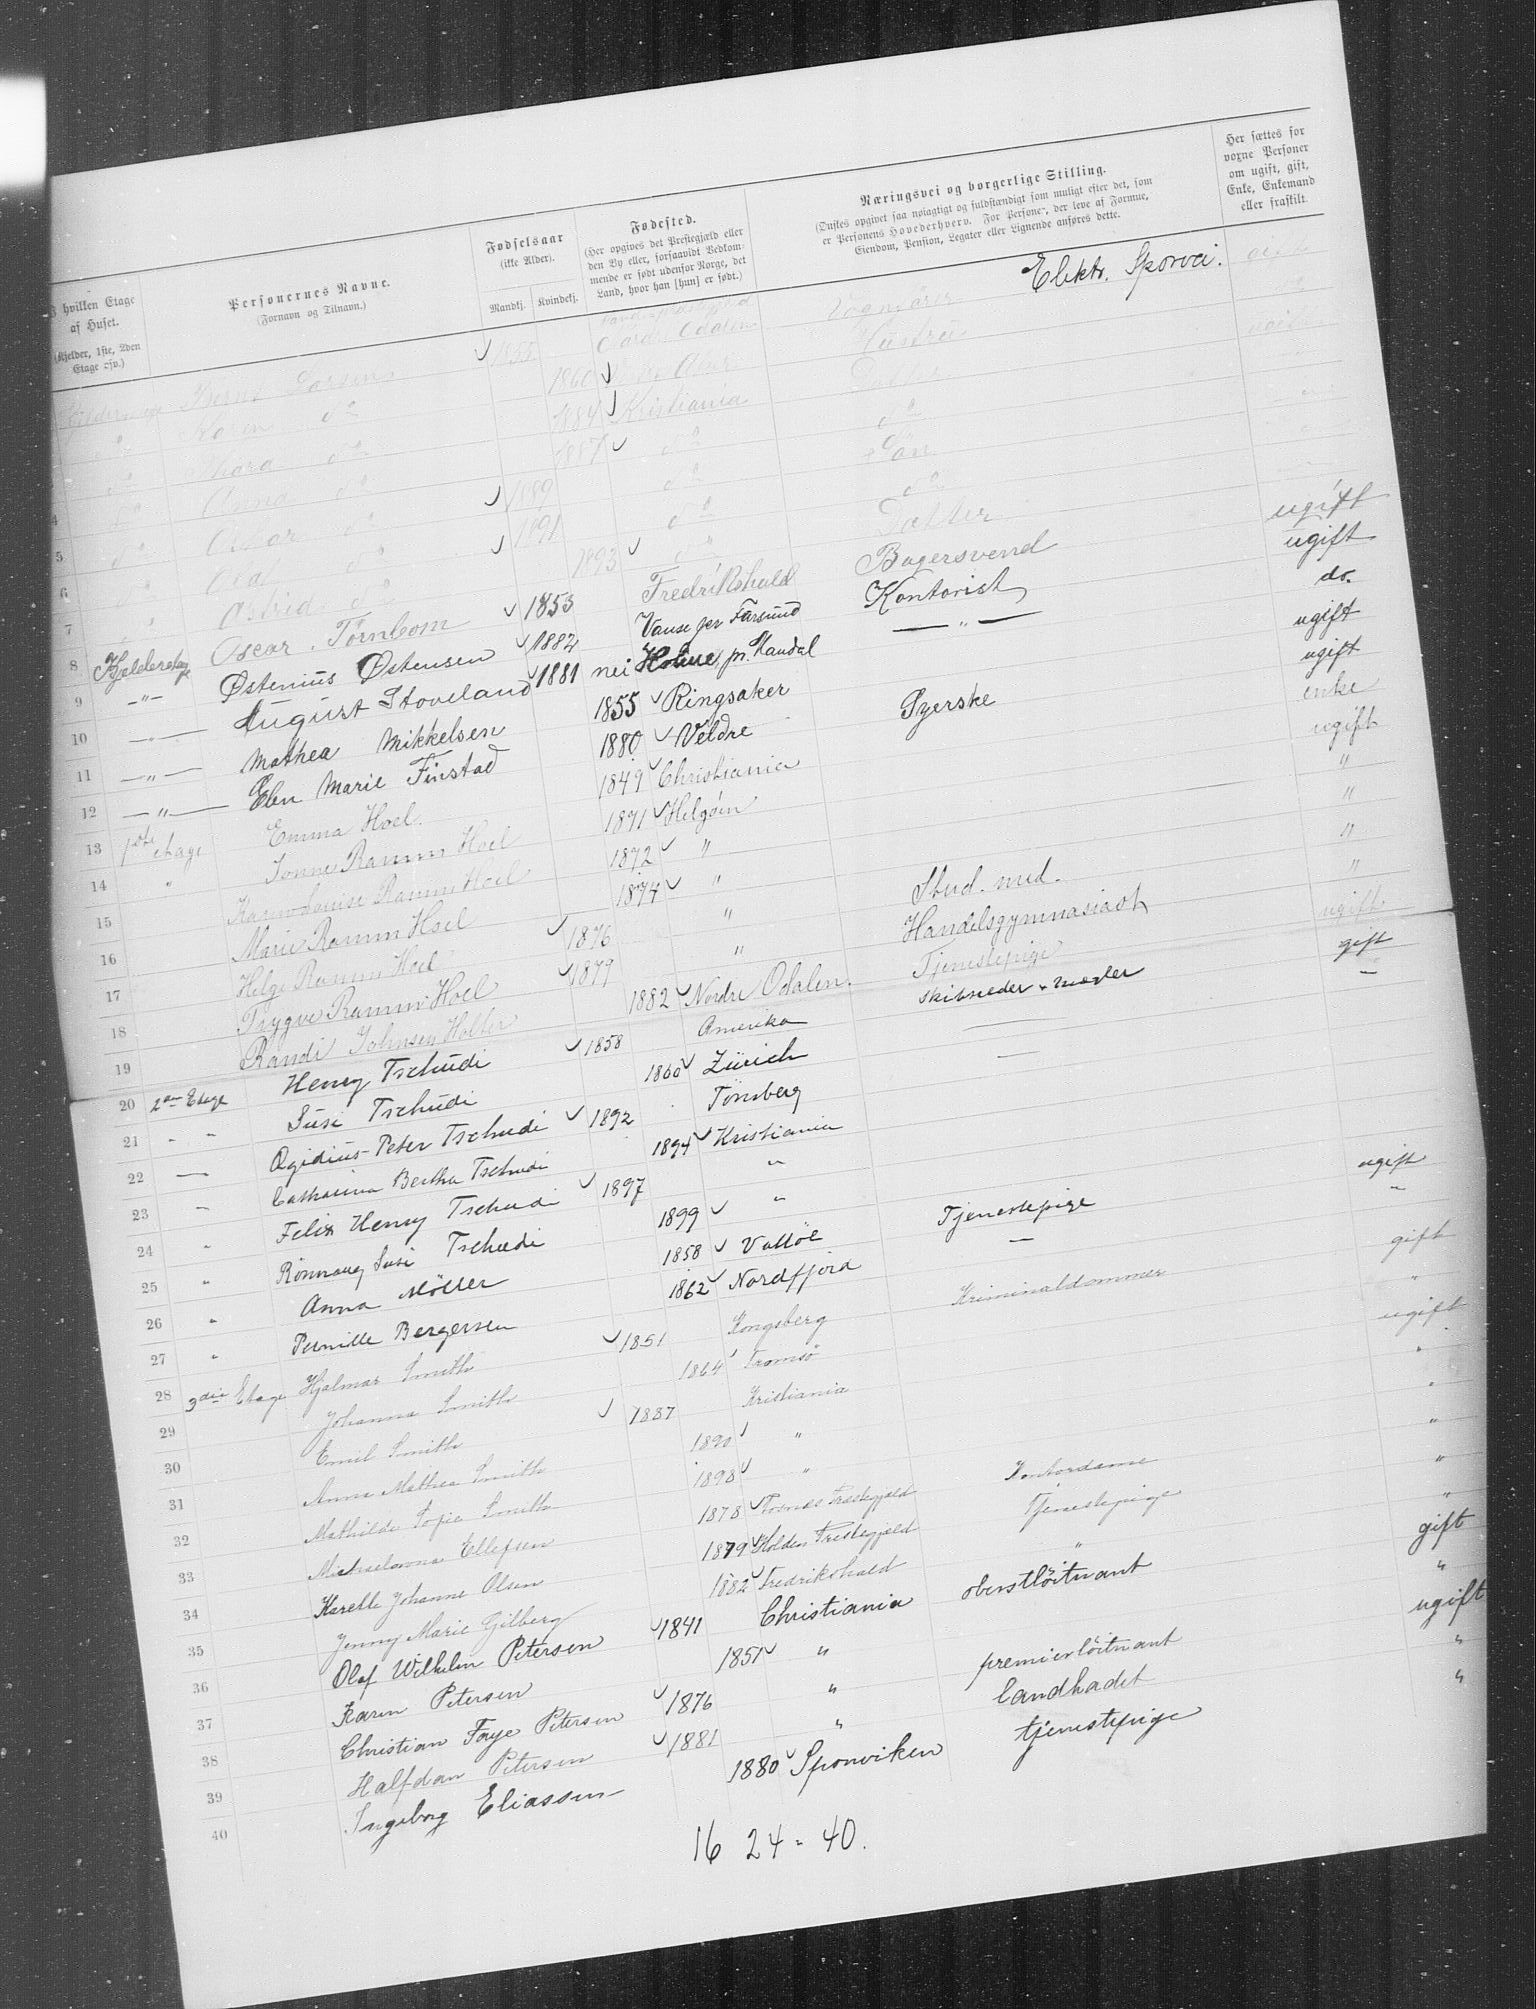 I hvilken Etage af Huset. (Kjelder, 1ste, 2den Etage osv.)
Personernes Navne. (Fornavn og Tilnavn.)
Fødselsaar (ikke Alder). Mandkj. Kvindekj.
Fødested. (Her opgives det Prestegjæld eller den By eller, forsaavidt Vedkommende er født udenfor Norge, det Land, hvor han [hun] er født.)
Næringsvei og borgerlige Stilling. (Ønskes opgivet saa nøiagtigt og fuldstændigt som muligt efter det, som er Personens Hovederhverv. For Personer, der leve af Formue, Eiendom, Pension, Legater eller Lignende anføres dette.
Her sættes for voxne Personer om ugift, gift, Enke, Enkemand eller fraskilt.
Larsen 1855 Odalen Vognfører Elektr. Sporvei. gift
Karen do 1860 Hustru
do 1884 Kristiania Datter ugift
4 do Anna do 1887 do do
5 do Oskar do 1889 do Søn
6 do Ola do 1891 do do
7 do Astrid do 1893 do Datter
8 Kjelderetage Oscar Törnbom 1853 Fredrikshald Bagersvend ugift
9 -"- Østenius Østensen 1882 Vanse per Farsund Kontorist ugift
10 -"- August Stoveland 1881 Holme, pr. Mandal -"- do.
11 -"- Mathea Mikkelsen 1855 Ringsaker ugift
12 -"- Elen Marie Finstad 1880 Veldre Syerske ugift
13 1ste etage Emma Hoel. 1849 Christiania enke
14 " Ramm Hoel 1871 Helgøen ugift
15 Karen Louise Ramm Hoel 1872 " "
16 Marie Ramm Hoel 1874 " "
17 Helge Ramm Hoel 1876 " Stud. med. "
18 Trygve Ramm Hoel 1879 " Handelsgymnasiast "
19 Randi Johnsen Holter 1882 Nordre Odalen. Tjenestepige ugift
20 2den Etage Henry Tschudi 1858 Amerika Skibsreder & mægler gift
21 " " Susi Tschudi 1860 Zürich — "
22 — Ægidius Peter Tschudi 1892 Tönsberg —
23 " Catharina Bertha Tschudi 1894 Kristiania
24 " Felix Henry Tschudi 1897 "
25 " Rönnaug Susi Tschudi 1899 "
26 " Anna Möller 1858 Valløe Tjenestepige ugift
27 " Pernille Bergersen 1862 Nordfjord — "
28 3die Etage Hjalmar Smith 1851 Kongsberg Kriminaldommer gift
29 Johanna Smith 1864 Tromsö "
30 Emil Smith 1887 Kristiania ugift
31 Anna Mathea Smith 1890 " "
32 Mathilde Sofie Smith 1898 " "
33 Ellefsen 1878 Prestegjæld Kontordame "
34 Karelle Johanne Olsen 1879 Holden Prestegjæld Tjenestepige "
35 Jenny Marie Gilberg 1882 Fredrikshald " "
36 Olaf Wilhelm Petersen 1841 Christiania oberstlöitnant gift
37 Karen Petersen 1851 " "
38 Christian Faye Petersen 1876 " premierlöitnant ugift
39 Halfdan Petersen 1881 " landkadet "
40 Ingeborg Eliassen 1880 Sponviken tjenestepige "
16 24 = 40.